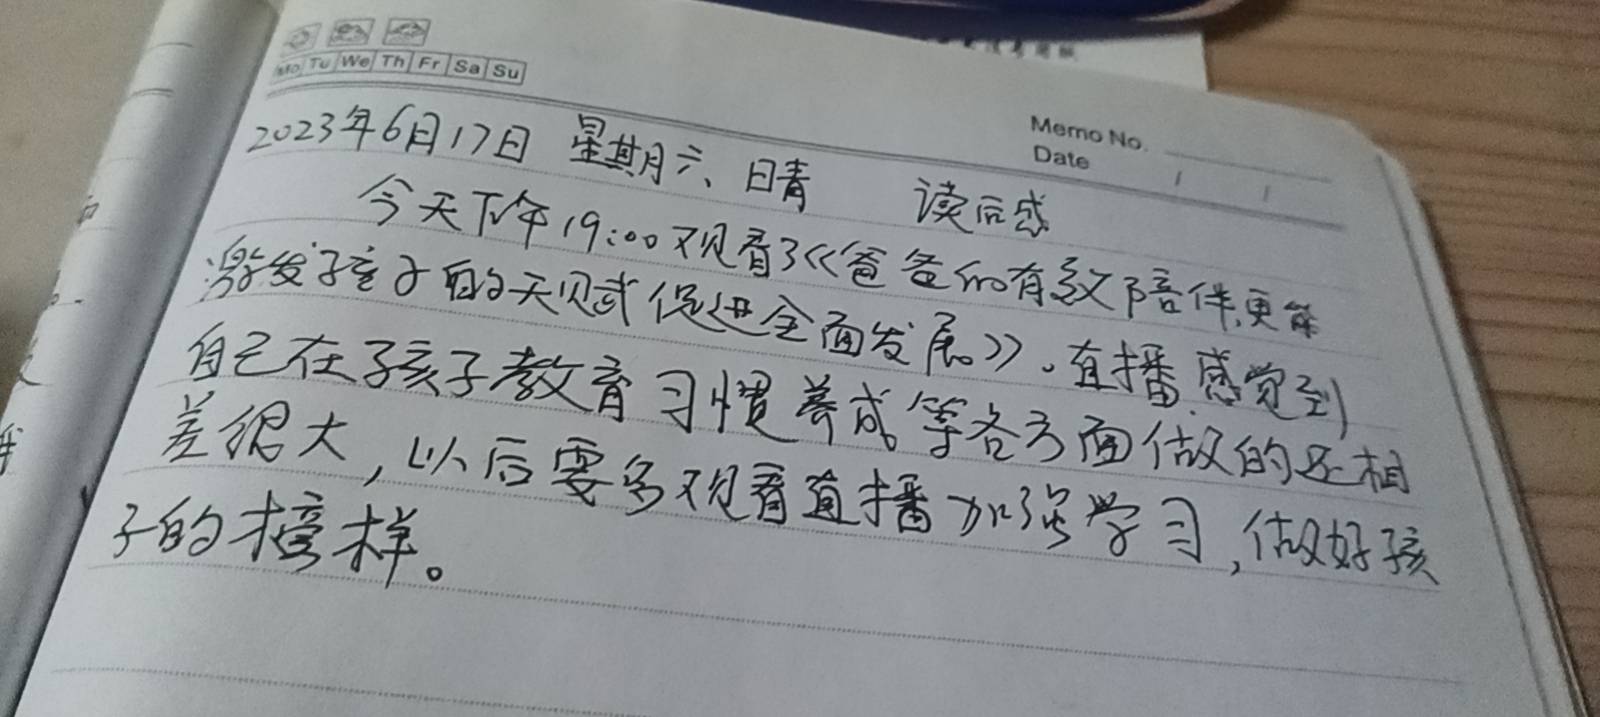 Mo Tu We Th Fr Sa Su
Memo No.
Date / /
2023年6月17日 星期六、日青 读后感
今天下午19:00观看了《爸爸的有效陪伴更能
激发孩子的天赋促进全面发展》。直播感觉到
自己在孩子教育习惯养成等各方面做的还相
差很大，以后要多观看直播加强学习，做好孩
子的榜样。